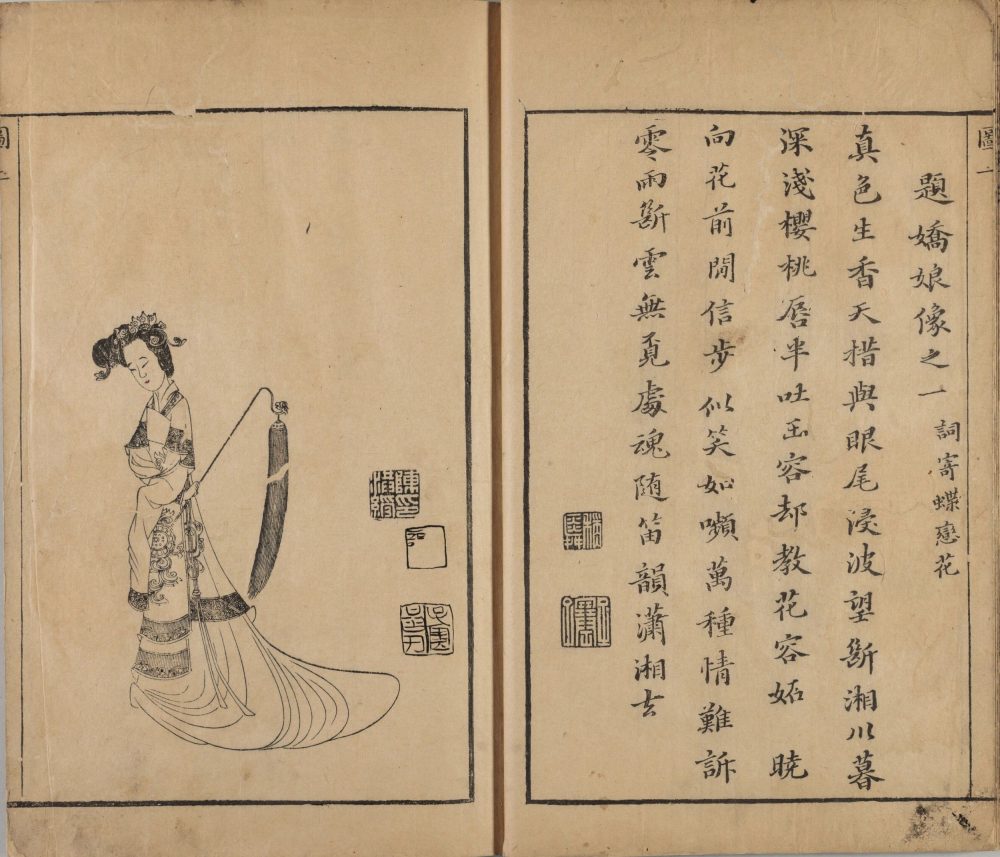 圖
題嬌娘像之一 詞寄蝶戀花
真色生香天措與眼尾浸波望斷湘川暮
深淺櫻桃唇半吐玉容却教花容妬 曉
向花前閒信步似笑如嚬萬種情難訴
零雨斷雲無覓處魂随笛韻瀟湘去
圖
陳印洪綬